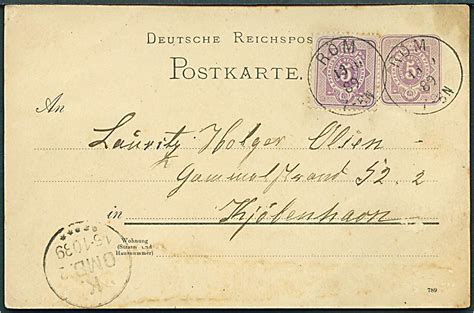 DEUTSCHE REICHSPOS
POSTKARTE.
RÖM
89
RÖM
89
5
5
An
Lauritz Holger Olsen
Gammelstrand 52. 2
in Kjöbenhavn
Wohnung
(Strasse und
Hausnummer)
K.
OMB. 2
789